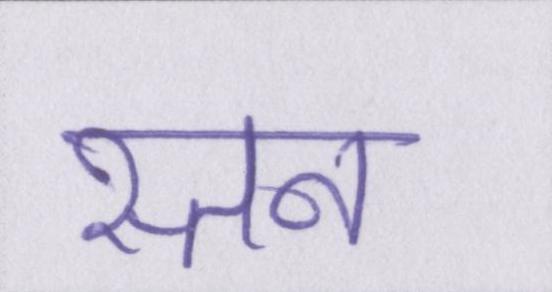 स्तन